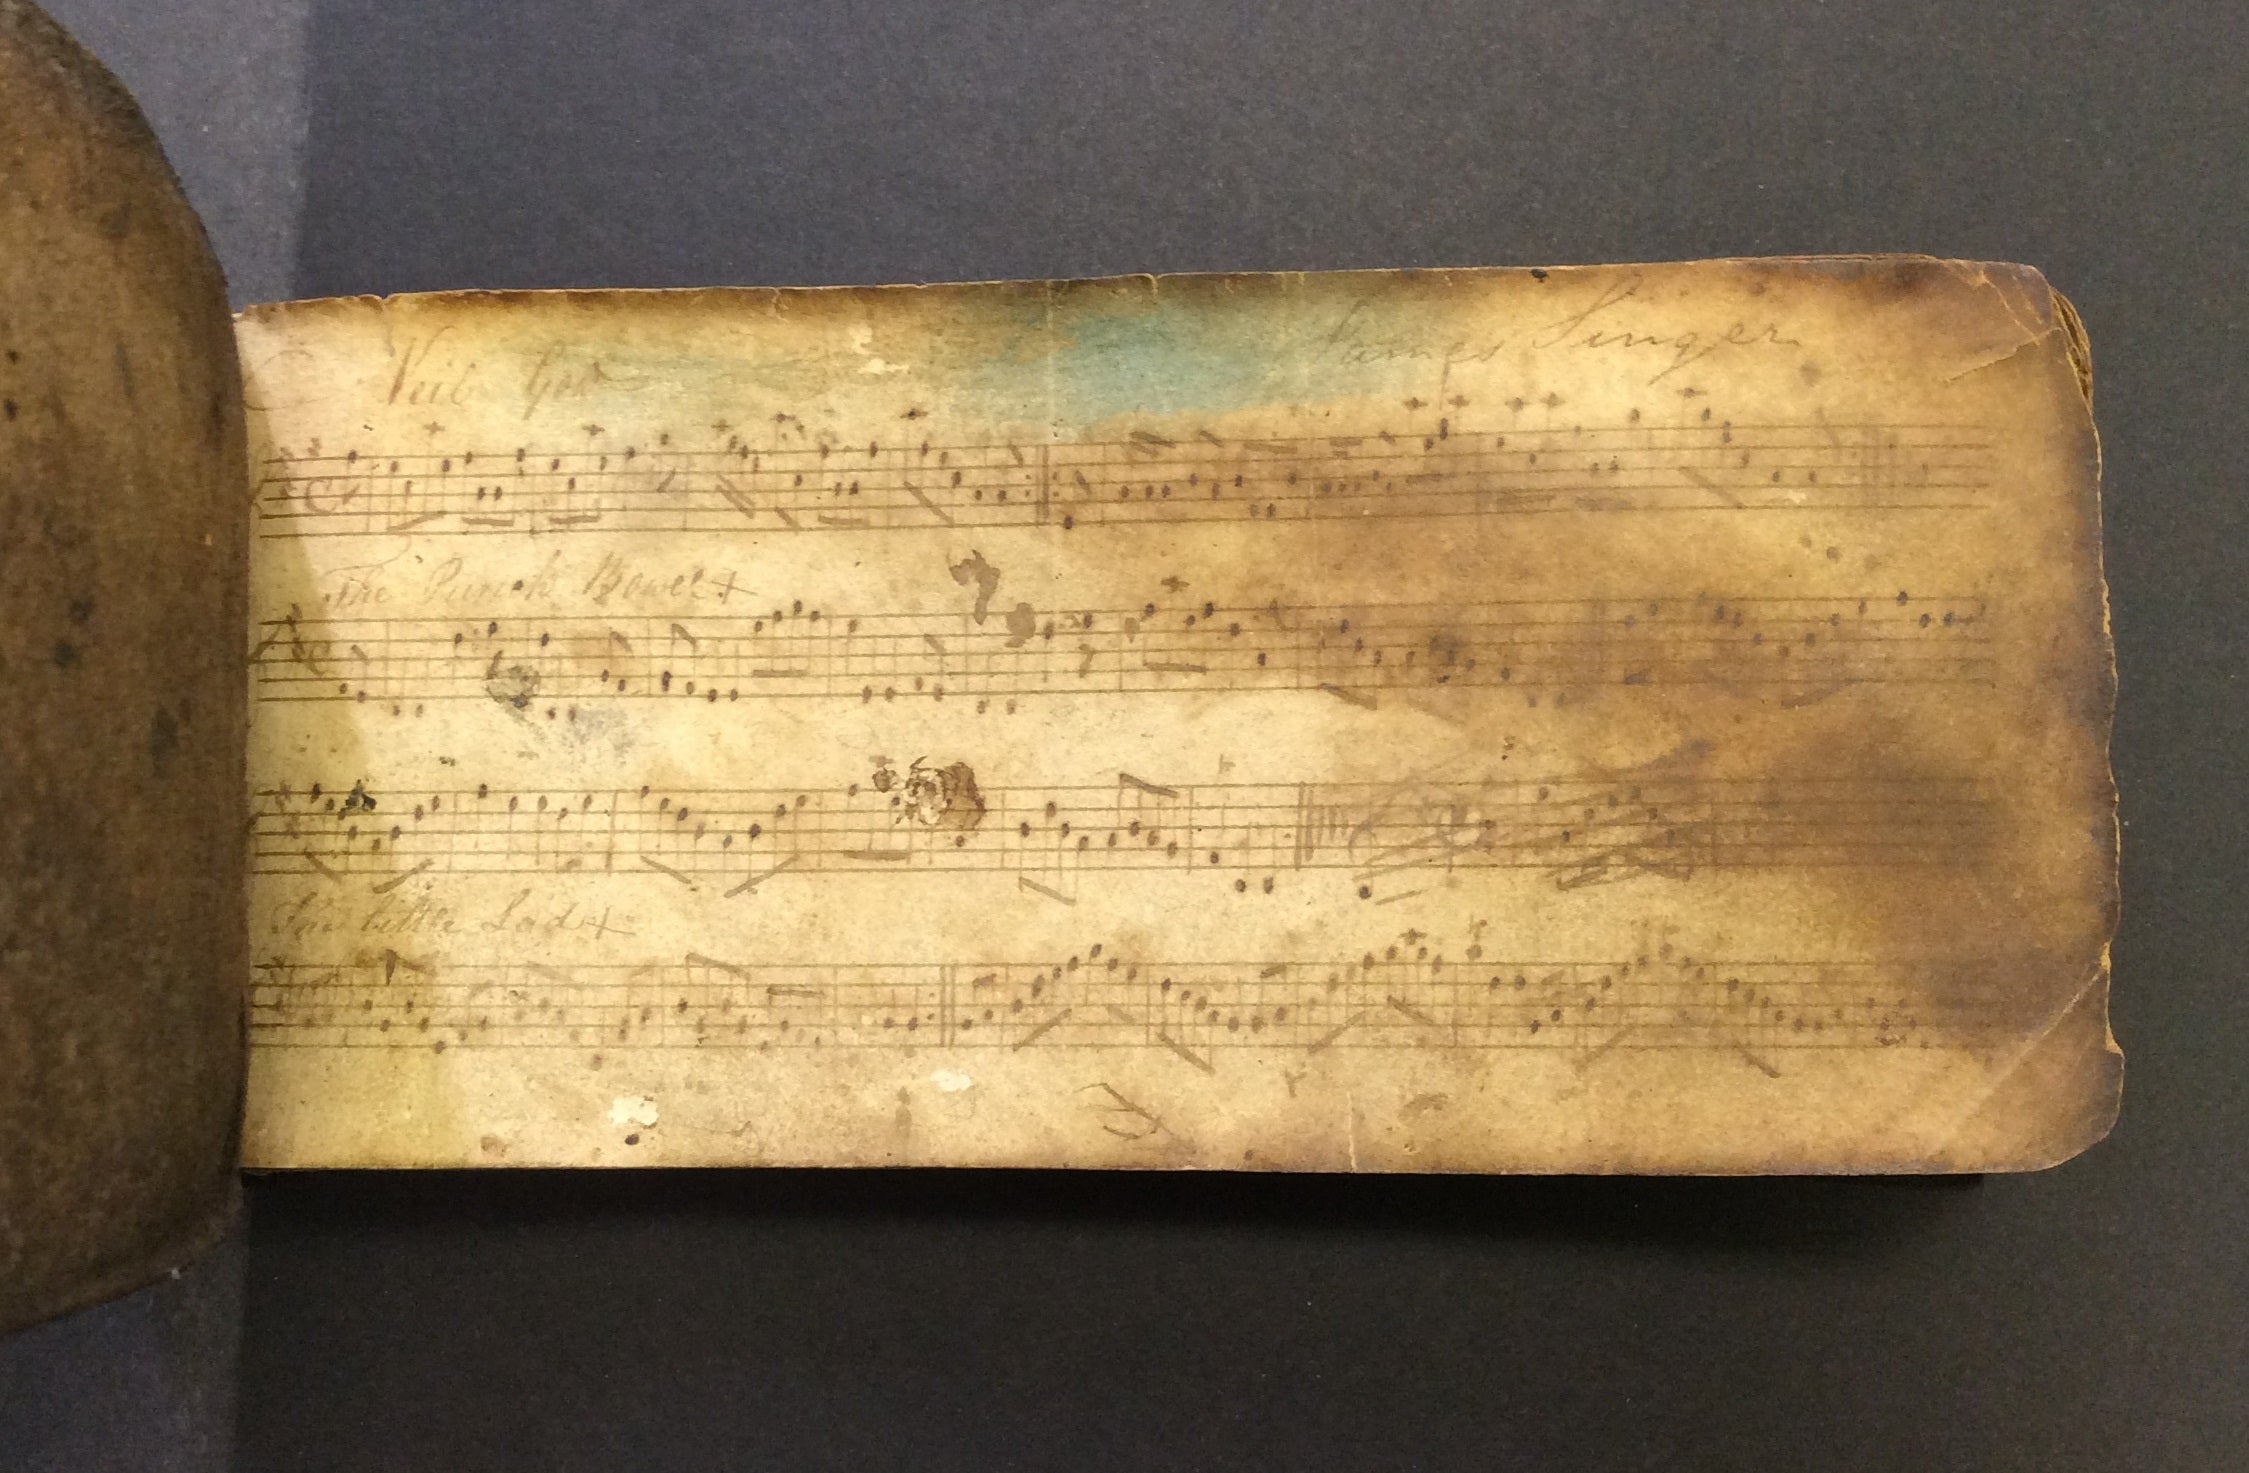 Neil Gow James Singer
The Punch Bowel
The little Lad